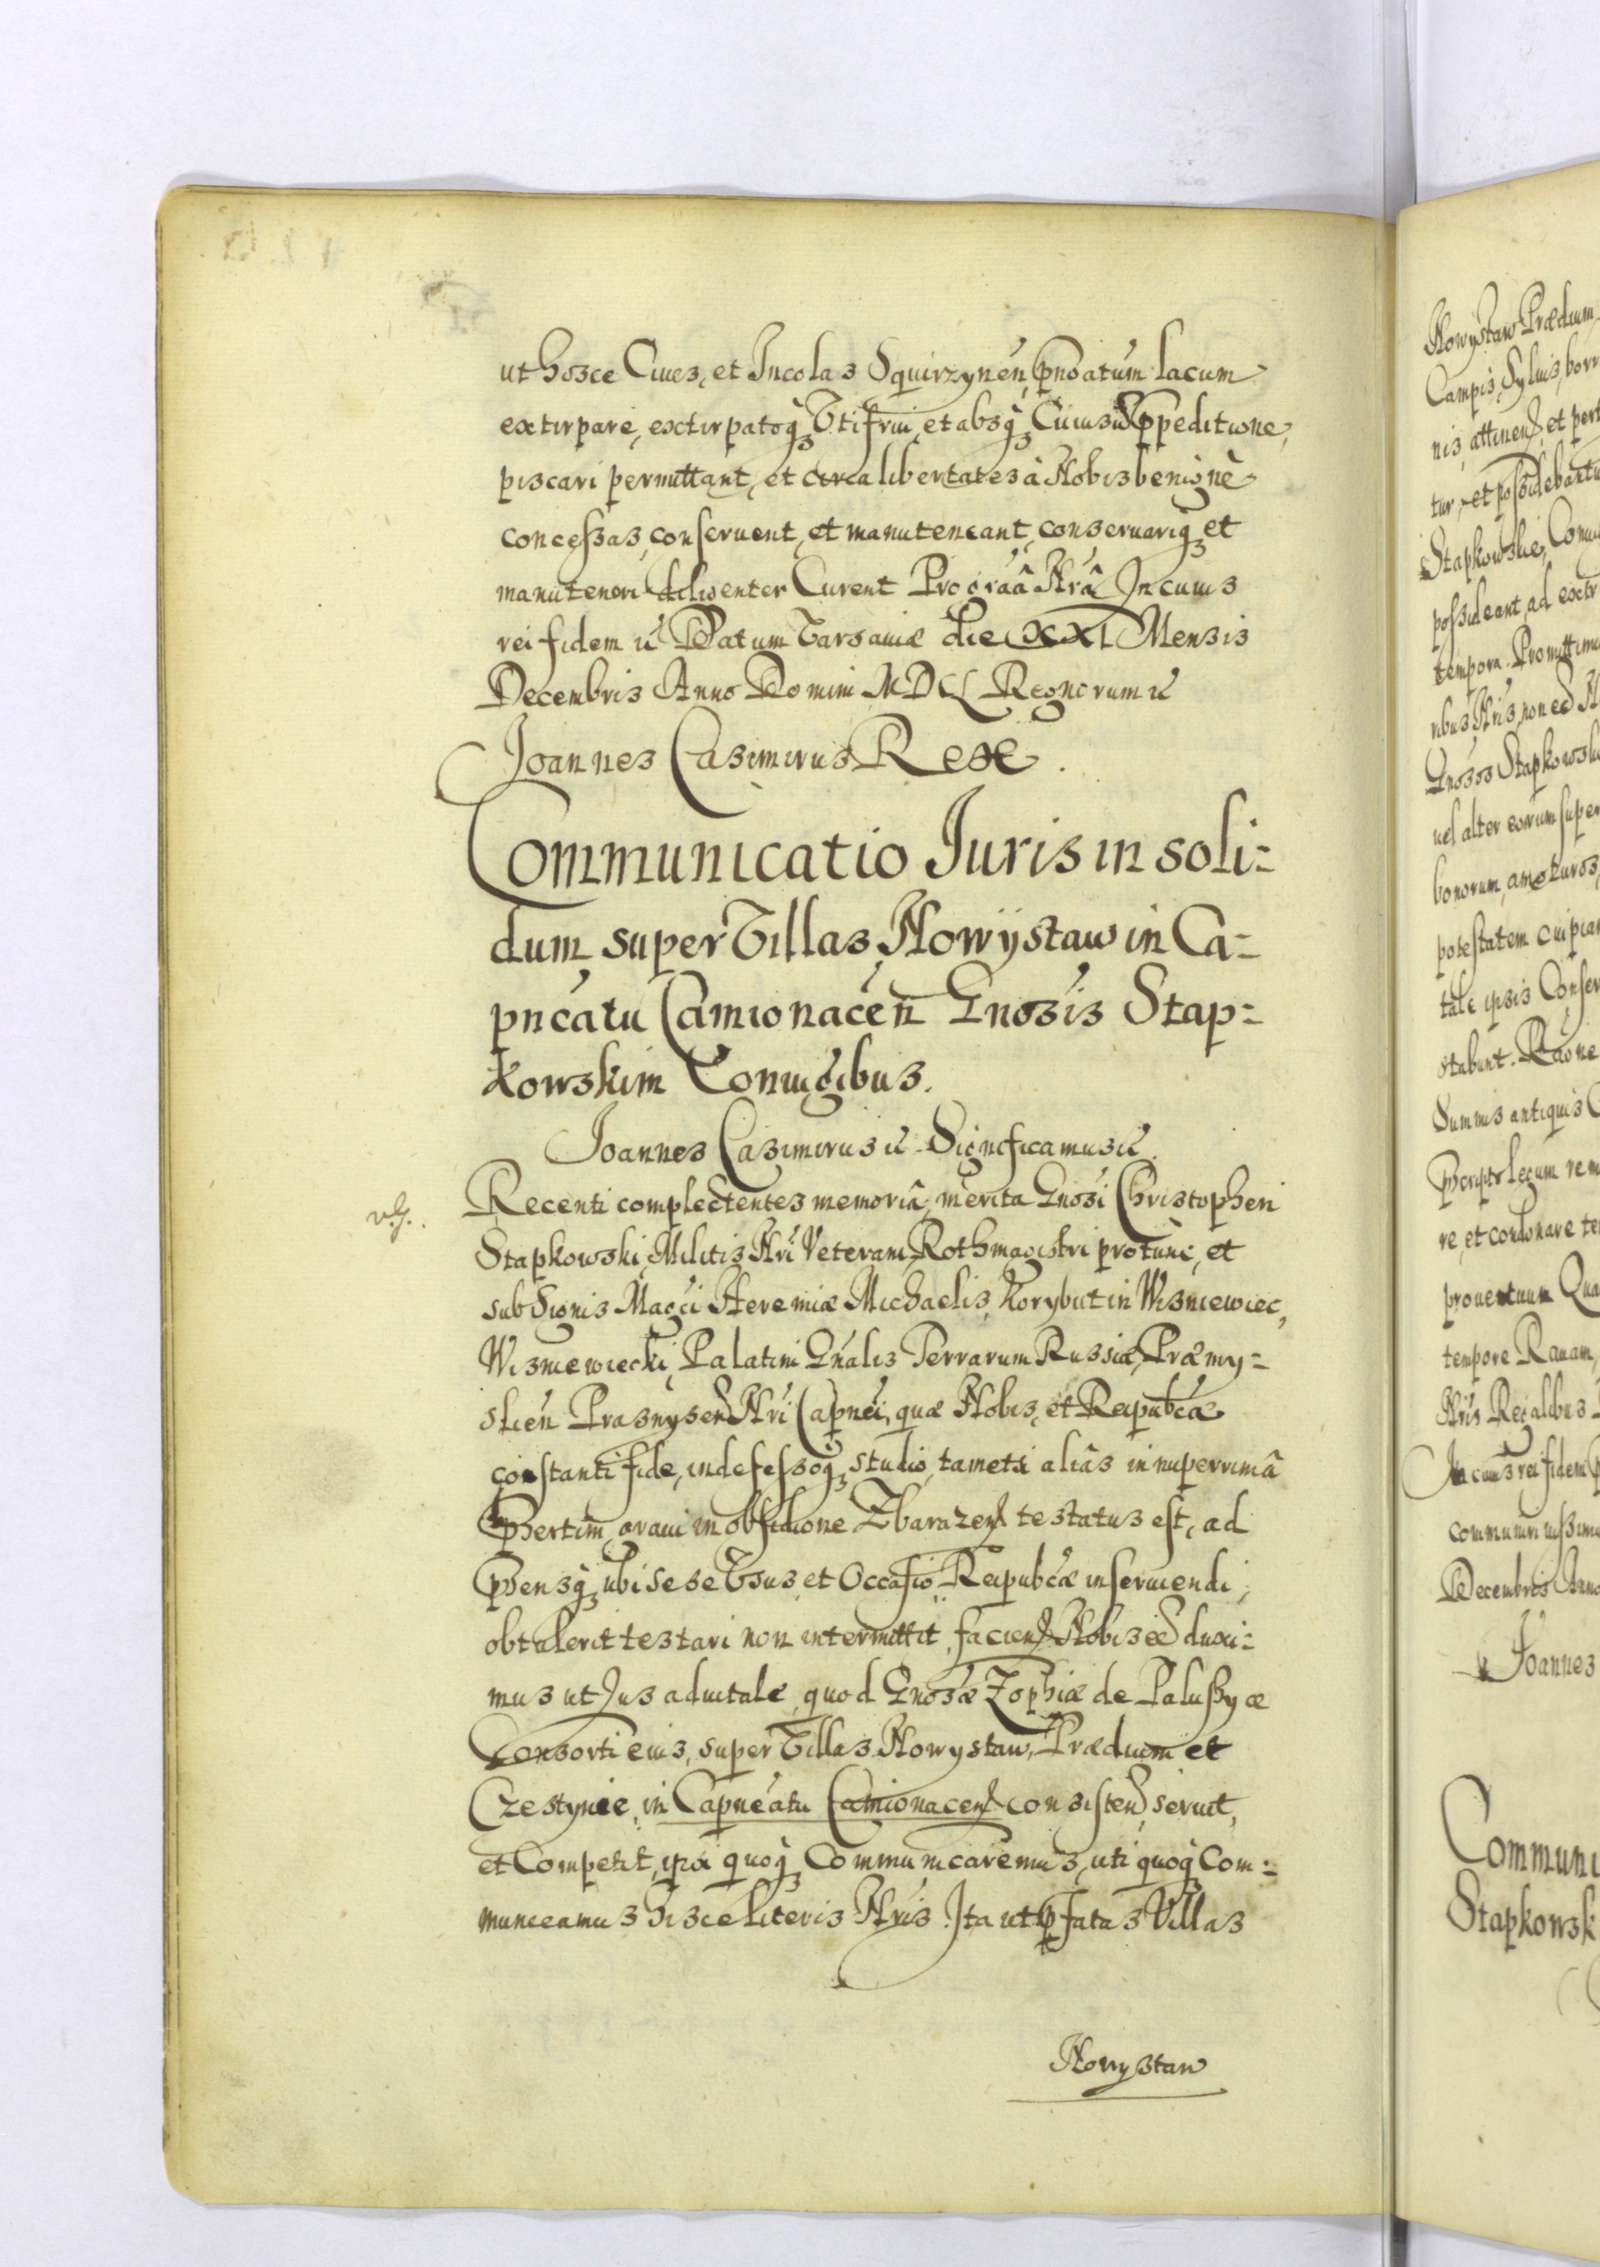 ut hosce Ciues, et Incolas Squirzynen̄, p̄noatum lacum
extirpare, extirpatoq; Vti frui, et absq; Cuiusuis p̄peditione,
piscari permittant, et circa libertates à Nobis benignè
concessas, conseruent, et manuteneant, conseruariq; et
manuteneri diligenter Curent Pro gratia Nrâ In cuius
rei fidem etc Datum Varsauiæ die XXI Mensis
Decembris Anno Domini MDCL Regnorum etc
Joannes Casimirus Rex.
Communicatio Juris in soli=
dum super Villas Nowÿstaw in Ca=
pncatu Camionacen̄ Gnosis Stap=
kowskim Coniugibus.
Joannes Casimirus etc Significamus etc.
Recenti complectentes memoriâ, merita Gnosi Christopheri
Stapkowski, Militis Nri Veterani Rothmagistri protunc, et
sub Signis Magci Heremiæ Michaelis Korybut in Wisniewiec,
Wisniewiecki, Palatini Gnalis Terrarum Russiæ, Præmy=
slien̄ Prasnysen̄ Nri Capnei, quæ Nobis, et Reipubcæ
constanti fide, indefessoq; studio, tametsi aliâs in nuperrimâ
p̄sertim graui in obsidione Zbarazen̄ testatus est, ad
p̄sensq; ubi sese Vsus et Occasio Reipubcæ inseruiendi,
obtulerit testari non intermittit, facien̄ Nobis eē duxi=
mus ut Jus aduitale quod Gnosæ Zophiæ de Palussyæ
Consorti eius, super Villas Nowystaw, Prædium et
Czestynie, in Capneatu Camionacen̄ consisten̄ seruit,
et Competit, ipsi quoq; Communicaremus, uti quoq; Com=
municamus hisce literis Nris. Ita ut p̄fatas Villas
Nowystaw
Nowystaw Prædium
Campis, Syluis, borr
nis, attinen̄ et pert
tur, et possidebantu
Stapkowskie, Coniu
possideant, ad extr
tempora. Promittimu
nibus Nris, non eē
Gnosos Stapkowsk
uel alter eorum super
bonorum, amoturos,
potestatem cuipiam
tale ipsis Conser
stabunt. Raone
Summis antiquis
re, et condonare te
prouentuum Qua
tempore Rauam,
Nris Regalibus
In cuius rei fidem
communiri iussimu
Decembris Anno
Joannes
Communi
Stapkowsk